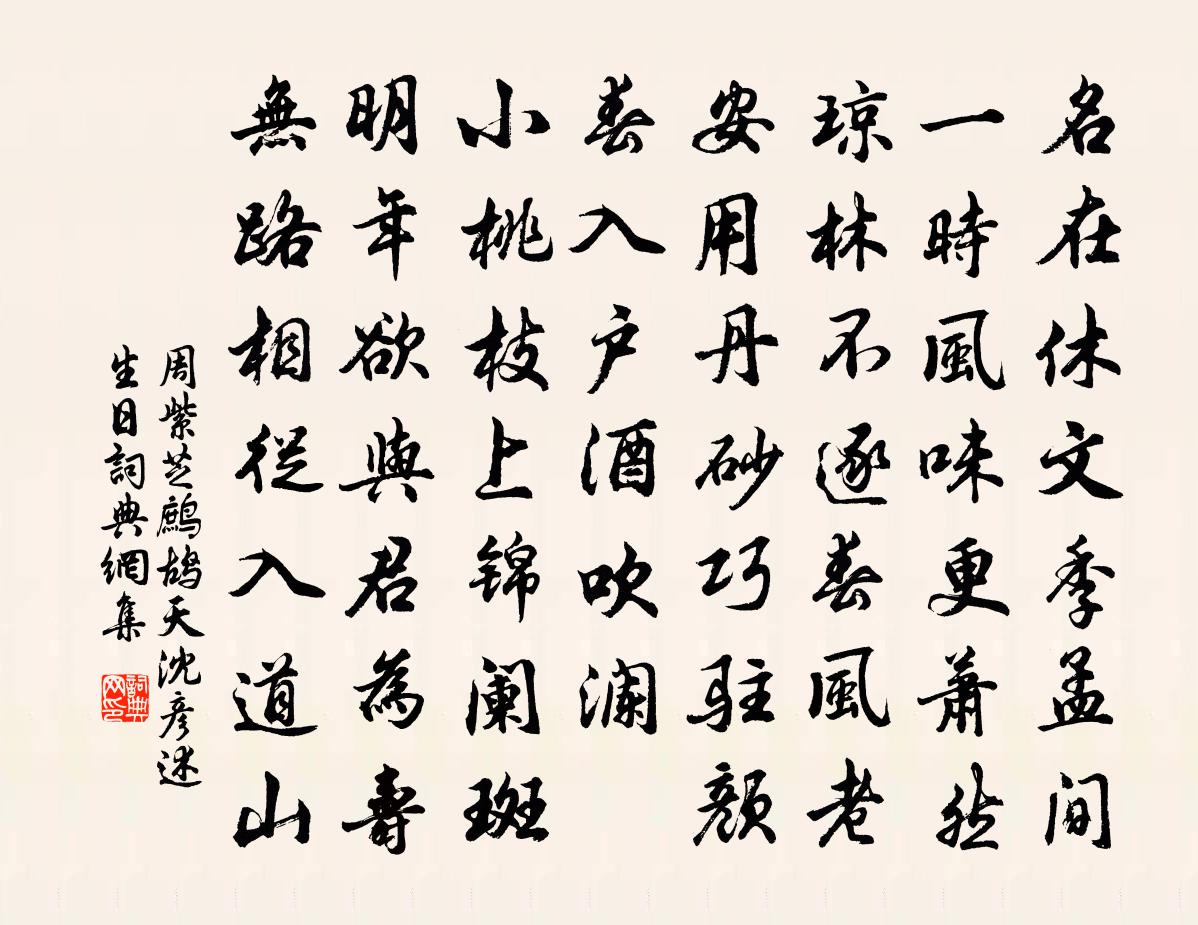 名在休文季孟间
一時風味更萧然
琼林不逐春風老
安用丹砂巧駐顔
春入户酒吹澜
小桃枝上锦阑斑
明年欲與君為壽
無路相從入道山
周紫芝鷓鴣天沈彦述
生日詞典網集
詞典
网